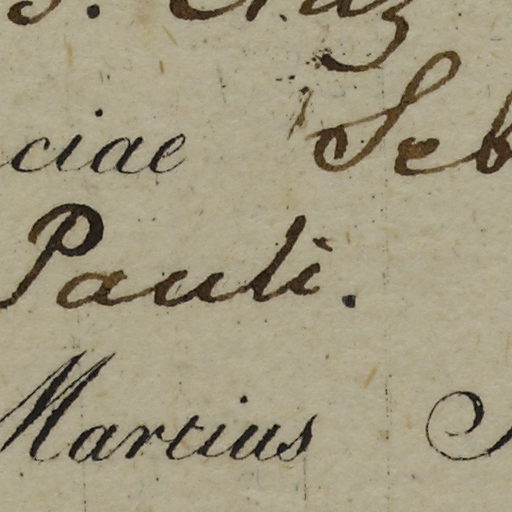 ciae Seb
Pauli.
Martius